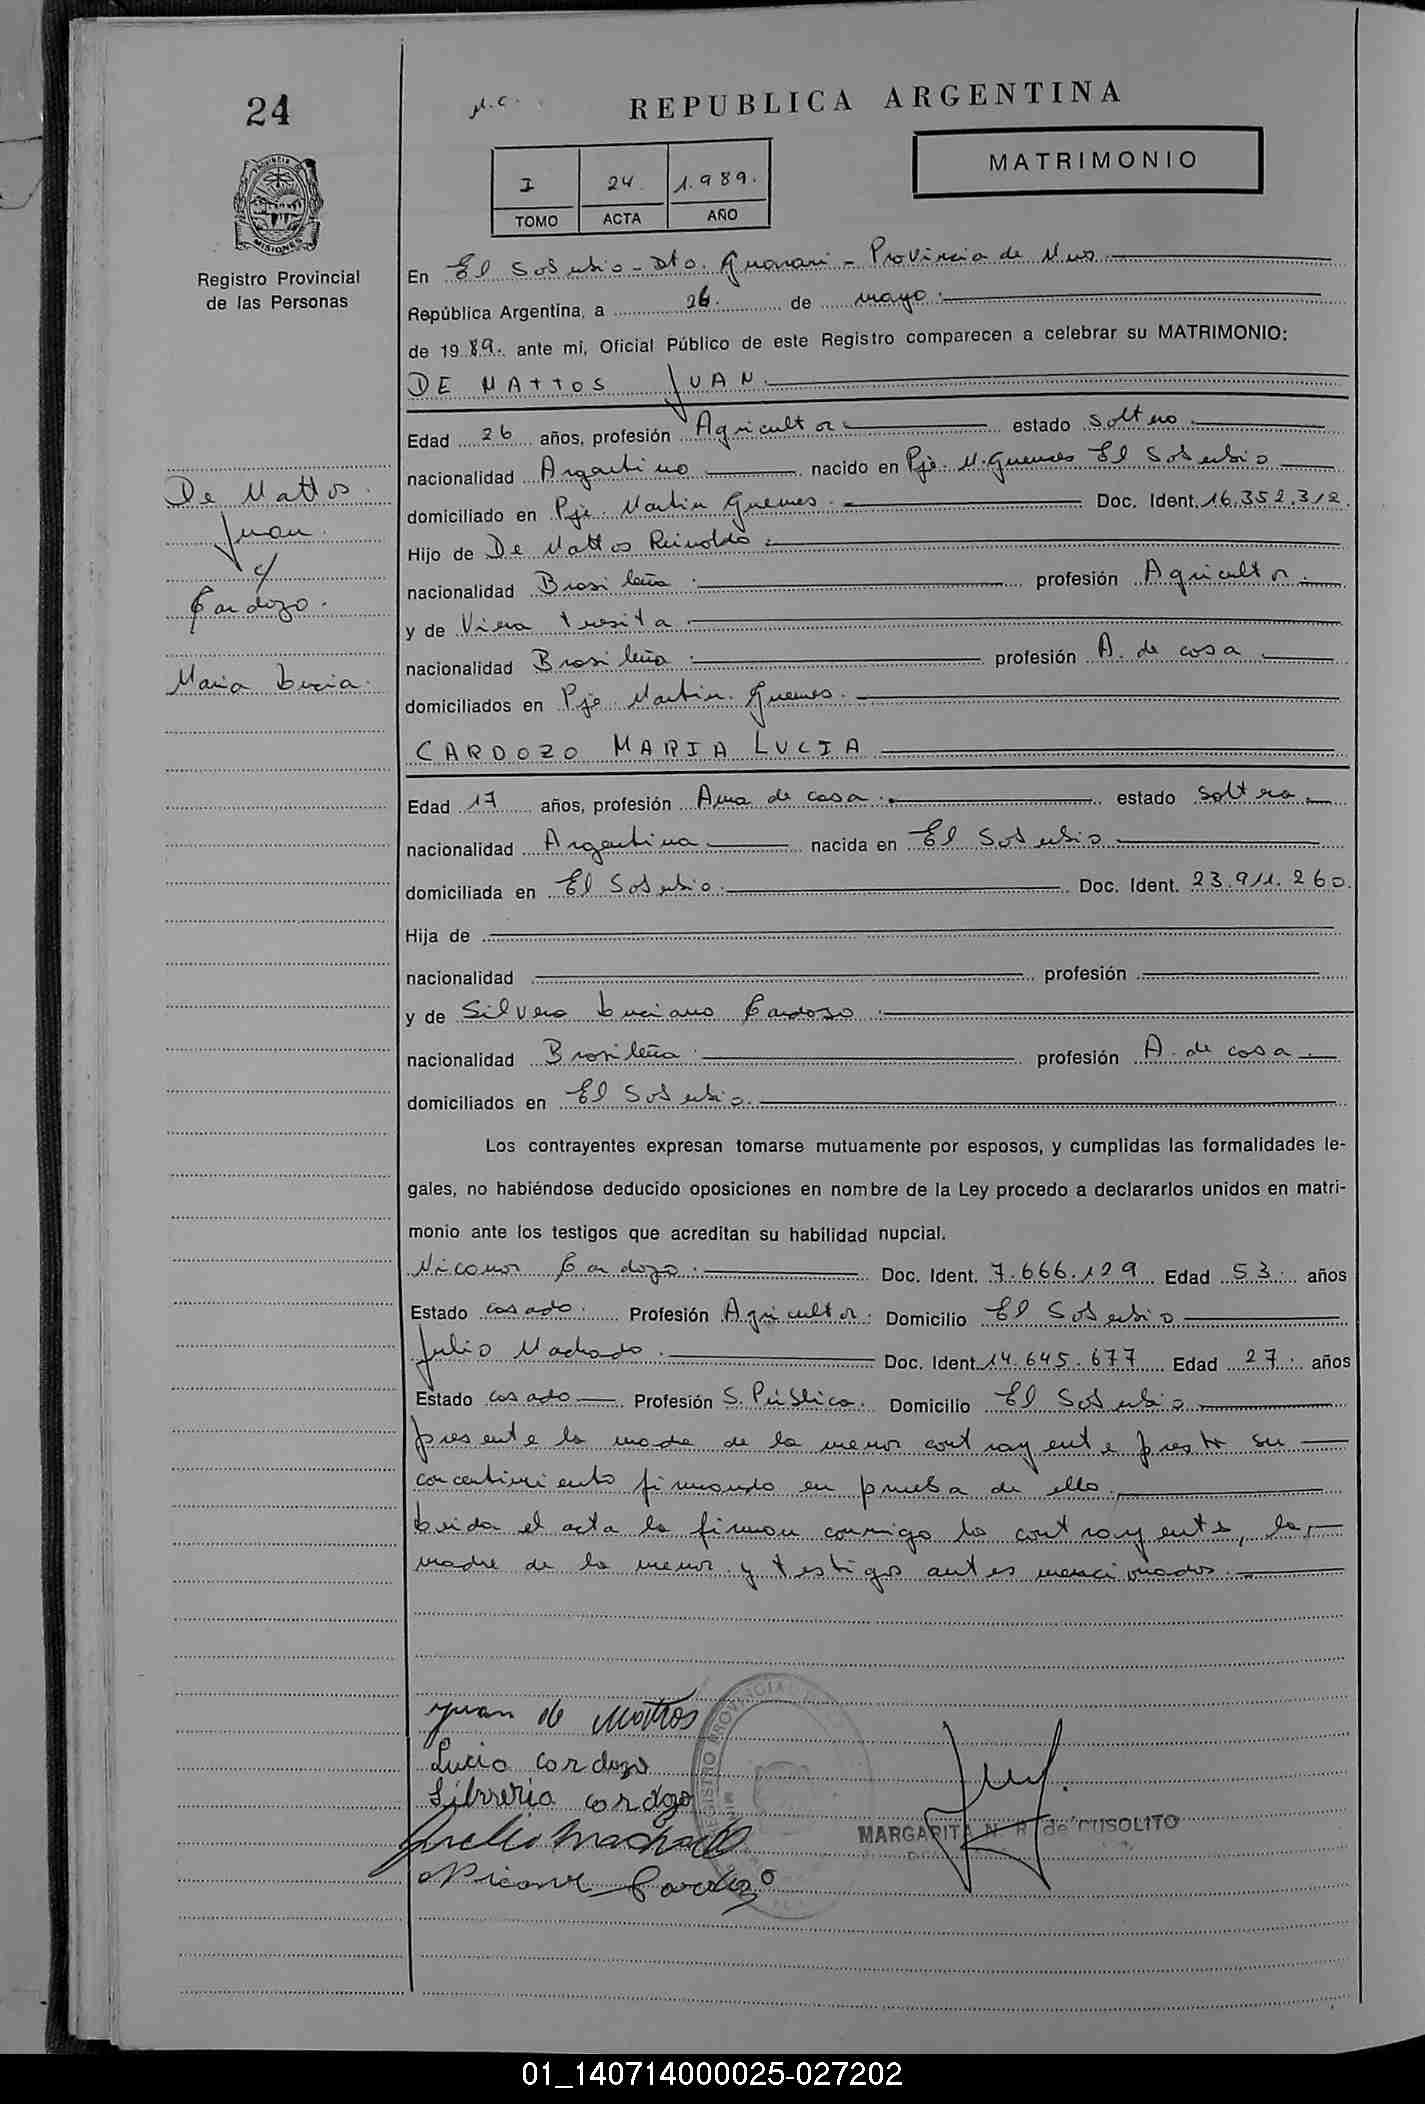 24
M.C.
REPUBLICA ARGENTINA
MATRIMONIO
I 24. 1.989.
TOMO ACTA AÑO
PROVINCIA DE MISIONES
Registro Provincial
de las Personas
En El Soberbio - Dto. Guarani - Provincia de Mnes
República Argentina, a 26. de mayo.
de 1989. ante mi, Oficial Público de este Registro comparecen a celebrar su MATRIMONIO:
DE MATTOS JUAN.
Edad 26 años, profesión Agricultor estado soltero.
nacionalidad Argentino nacido en Pje. M. Guemes El Soberbio
domiciliado en Pje. Martin Guemes. Doc. Ident. 16.352.312.
Hijo de De Mattos Reinoldo.
nacionalidad Brasileña. profesión Agricultor.
y de Viera tresita.
nacionalidad Brasileña. profesión A. de casa.
domiciliados en Pje. Martin. Guemes.
CARDOZO MARIA LUCIA
Edad 17 años, profesión Ama de casa. estado soltera.
nacionalidad Argentina nacida en El Soberbio
domiciliada en El Soberbio. Doc. Ident. 23.911.260.
Hija de
nacionalidad profesión
y de Silvera Luciano Cardozo.
nacionalidad Brasileña. profesión A. de casa.
domiciliados en El Soberbio.
De Mattos.
Juan.
c/
Cardozo.
Maria Lucia.
Los contrayentes expresan tomarse mutuamente por esposos, y cumplidas las formalidades le-
gales, no habiéndose deducido oposiciones en nombre de la Ley procedo a declararlos unidos en matri-
monio ante los testigos que acreditan su habilidad nupcial.
Nicanor Cardozo. Doc. Ident. 7.666.129 Edad 53. años
Estado casado. Profesión Agricultor. Domicilio El Soberbio
Julio Machado. Doc. Ident. 14.645.677 Edad 27. años
Estado casado Profesión S. Pública. Domicilio El Soberbio
presente la madre de la menor contrayente presta su
concentimiento firmando en prueba de ello.
Leida el acta la firman conmigo los contrayente, la
madre de la menor y testigos antes mencionados.
Juan de Mattos
Lucia cardozo
cardozo
Machado
Nicanor Cardozo
REGISTRO PROVINCIAL
MARGARITA N. R. de CUSOLITO
01_140714000025-027202